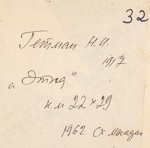 32
Гетман Н.И.
1917
"Этюд"
к.м 22×29
1962